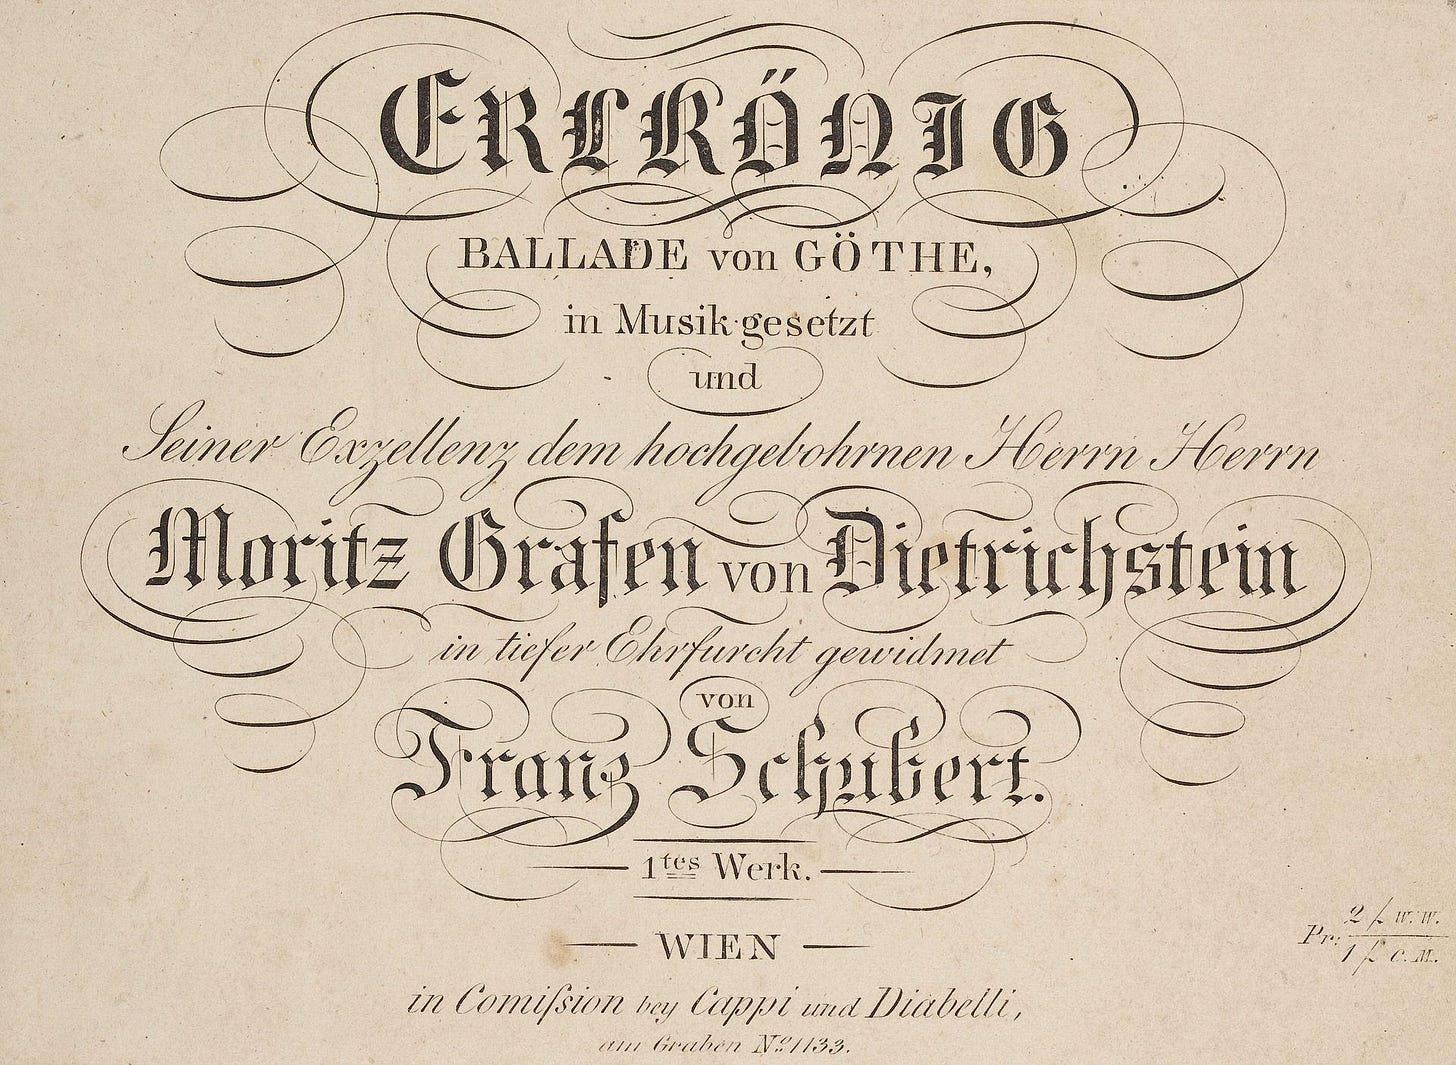 ERLKÖNIG
BALLADE von GÖTHE,
in Musik gesetzt
und
Seiner Exzellenz dem hochgebohrnen Herrn Herrn
Moritz Grafen von Dietrichstein
in tiefer Ehrfurcht gewidmet
von
Franz Schubert.
1tes Werk.
WIEN
Pr: 2 f W.W.
1 f C.M.
in Comiſsion bey Cappi und Diabelli,
am Graben No. 1133.